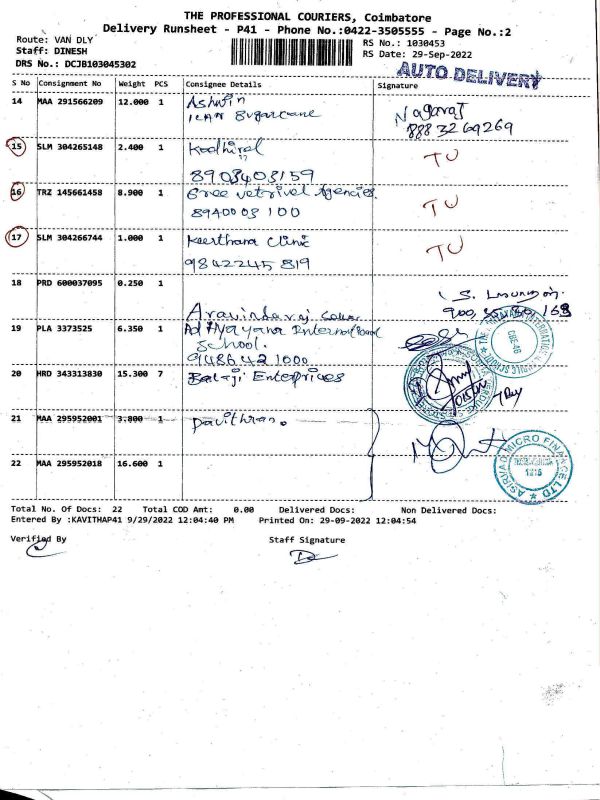 THE PROFESSIONAL COURIERS, Coimbatore
Delivery Runsheet - P41 - Phone No.:0422-3505555 - Page No.:2
Route: VAN DLY
RS No.: 1030453
Staff: DINESH
RS Date: 29-Sep-2022
DRS No.: DCJB103045302
AUTO DELIVERY
S No Consignment No Weight PCS Consignee Details Signature
14 MAA 291566209 12.000 1 Ashwin Nagaraj
ICAR Sugarcane 8883269269
15 SLM 304265148 2.400 1 Kodhiral TU
8903403159
16 TRZ 145661458 8.900 1 Sree vetrivel Agencies. TU
8940003100
17 SLM 304266744 1.000 1 Keerthana Clinic TU
9842245819
18 PRD 600037095 0.250 1
Aravindaraj
19 PLA 3373525 6.350 1 International
School.
9486421000
20 HRD 343313830 15.300 7 Balaji Enterprices
21 MAA 295952001 3.800 1 Pavithran.
ASIRVAD MICRO FINANCE LTD
22 MAA 295952018 16.600 1
Total No. Of Docs: 22 Total COD Amt: 0.00 Delivered Docs: Non Delivered Docs:
Entered By :KAVITHAP41 9/29/2022 12:04:40 PM Printed On: 29-09-2022 12:04:54
Verified By Staff Signature